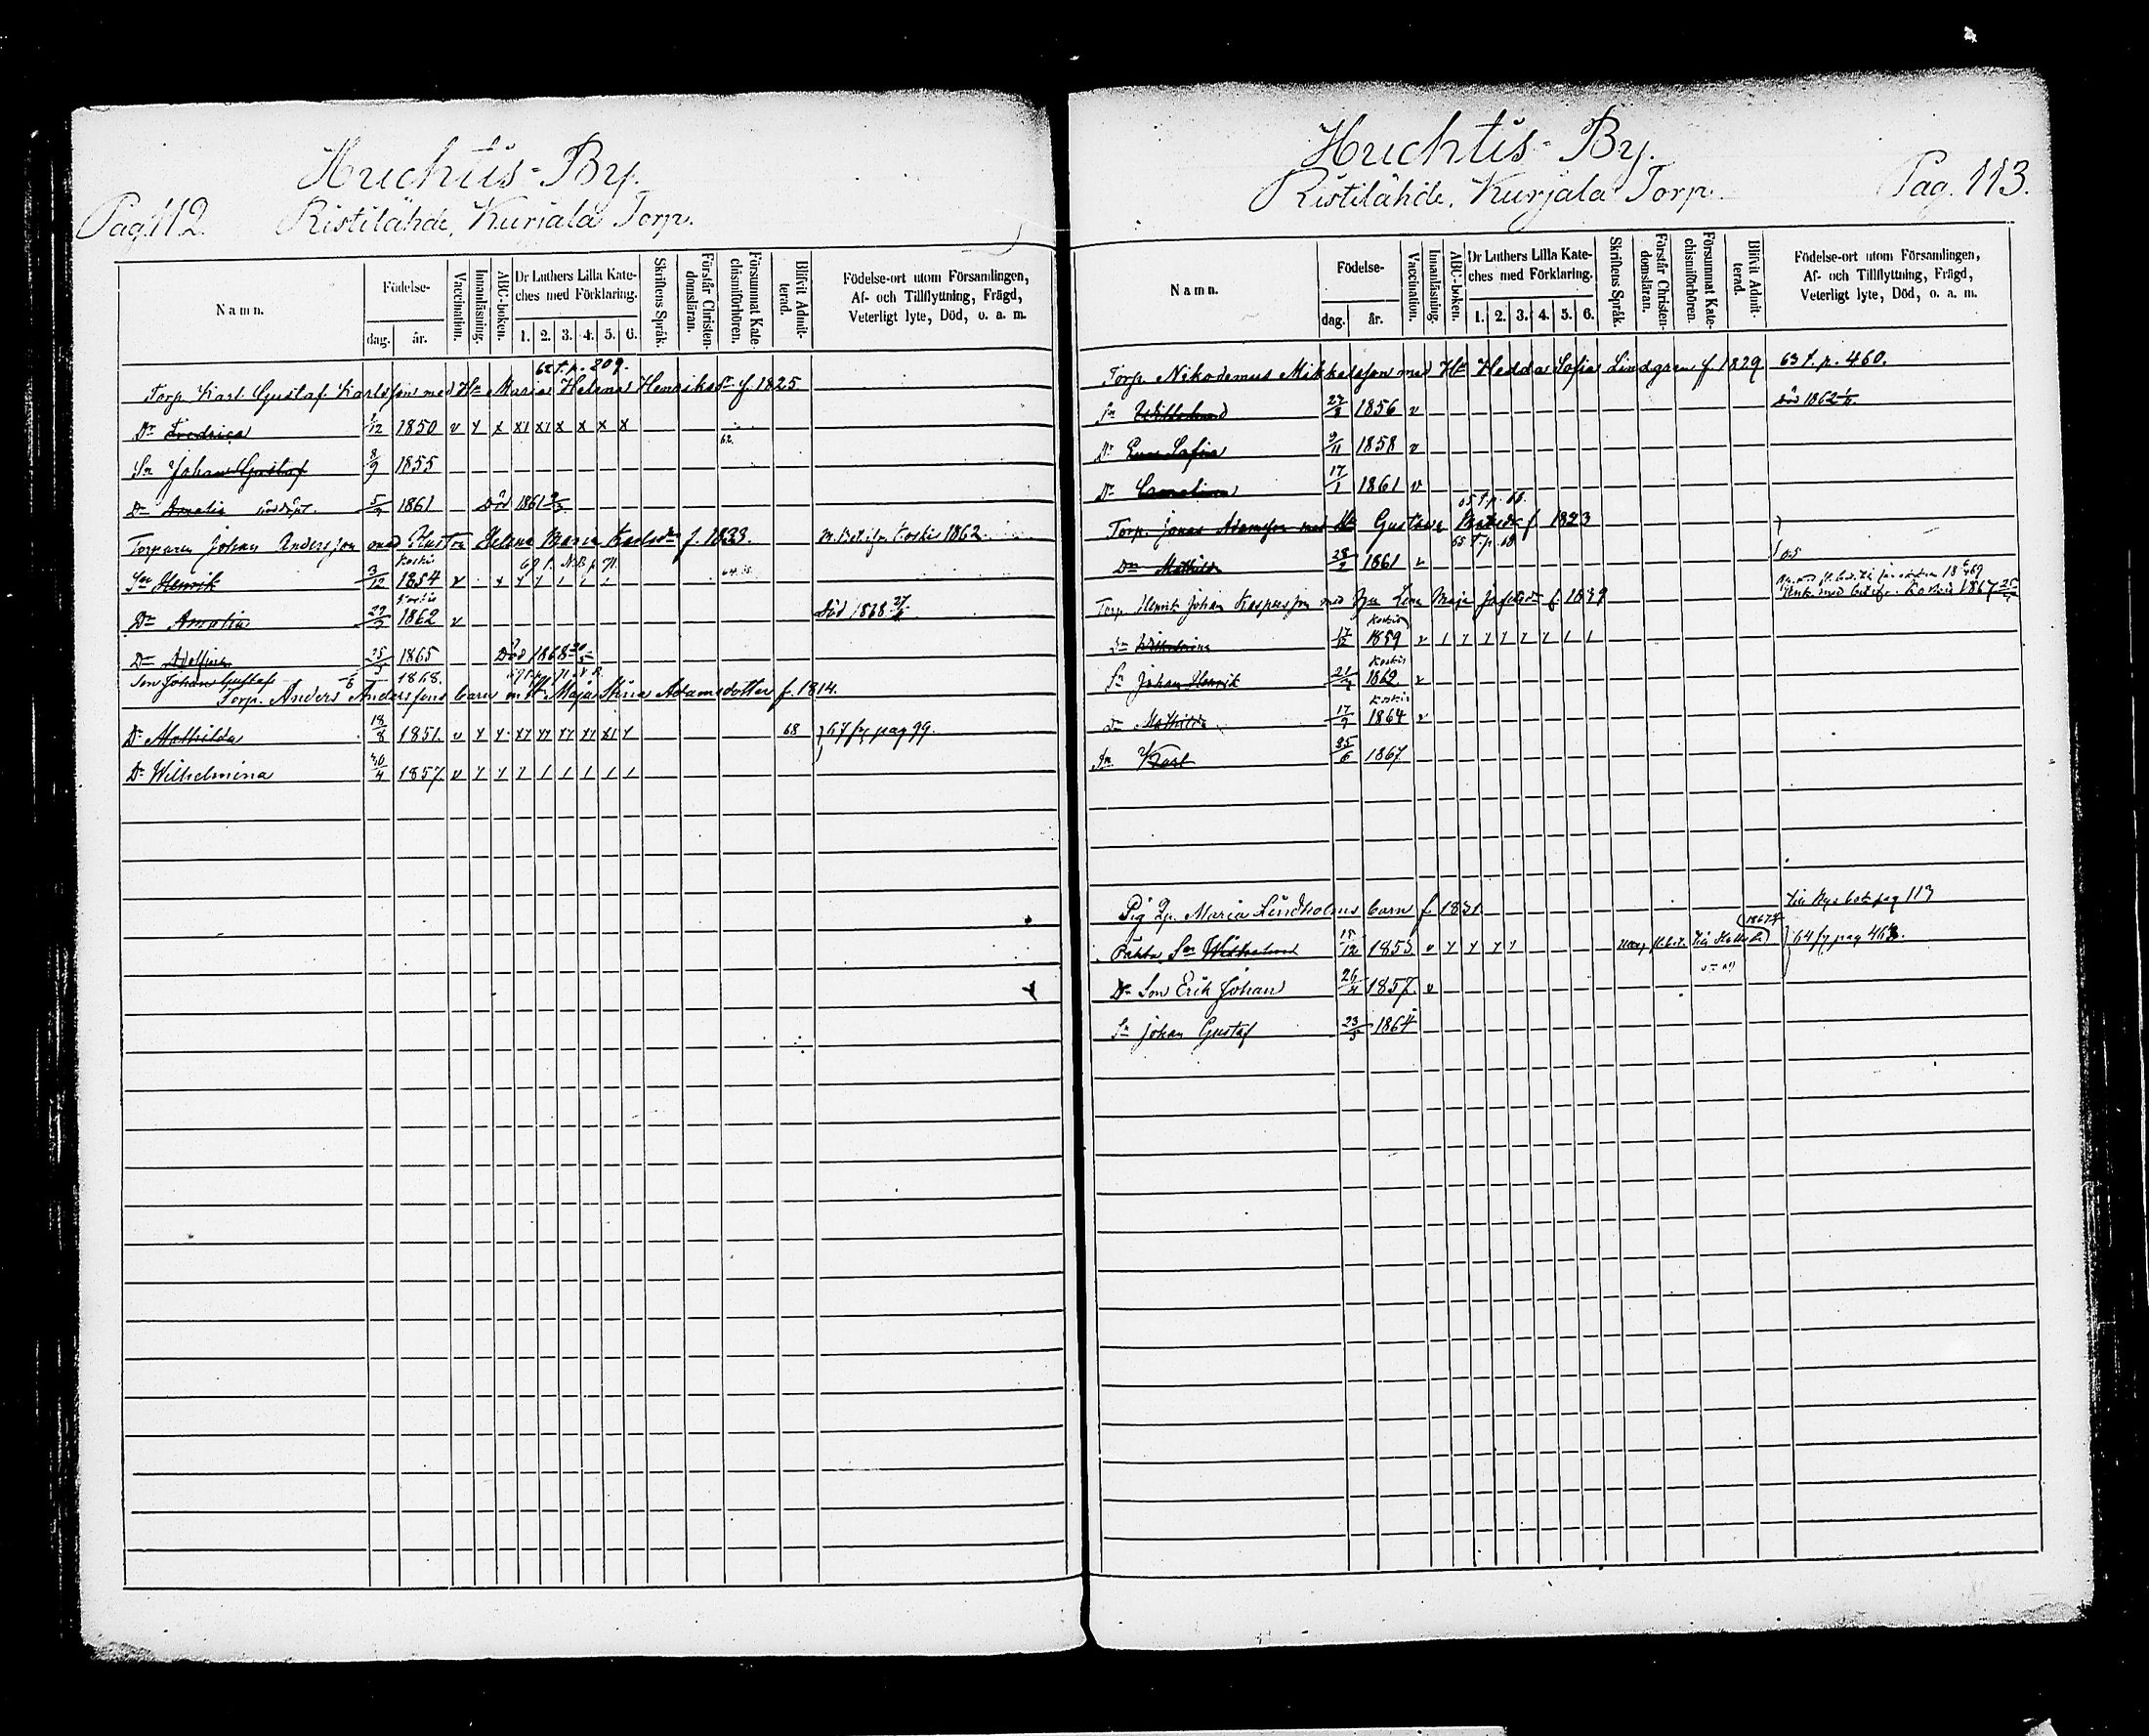 Huchtis-By.
Pag. 112. Ristilähde, Kurjala Torp.
Namn. Födelse- dag. år. Vaccination. Innanläsning. ABC-boken. Dr Luthers Lilla Kateches med Förklaring. 1. 2. 3. 4. 5. 6. Skriftens Språk. Förstår Christendomsläran. Försummat Katechismiförhören. Blifvit Admitterad. Födelse-ort utom Församlingen, Af- och Tillflyttning, Frägd, Veterligt lyte, Död, o. a. m.
62 t. p. 209.
Torp. Karl Gustaf Karlsson med Hu Maria Helena Henriksdr f. 1825
Dr Fredrica 1/12 1850 v x x x1 x1 x x x x 62
Sn Johan Gustaf 8/9 1855
Dr Amalia 5/2 1861 Död 1861
Torparen Johan Andersson med Hustru Helena Maria Karlsdr f. 1833. Koskis 1862.
Koskis 67 t. N.B. p 71.
Sn Henrik 3/12 1854 v 64
Koskis
Dr Amalia 1862 v Död 1868
Dr Adolfina 25 1865 Död 1868
Son Johan Gustaf 1868.
Torp. Anders Anderssons barn m Hu Maja Stina Adamsdotter f. 1814.
Dr Mathilda 18/8 1851. v 68 67 fr pag 99.
Dr Wilhelmina 30/4 1857. v
Huchtis-By.
Ristilähde, Kurjala Torp. Pag. 113.
Namn. Födelse- dag. år. Vaccination. Innanläsning. ABC-boken. Dr Luthers Lilla Kateches med Förklaring. 1. 2. 3. 4. 5. 6. Skriftens Språk. Förstår Christendomsläran. Försummat Katechismiförhören. Blifvit Admitterad. Födelse-ort utom Församlingen, Af- och Tillflyttning, Frägd, Veterligt lyte, Död, o. a. m.
Torp. Nikodemus Mikkelsson med Hu Hedda Sofia Lindgren f. 1829 63 t. p. 460.
Sn 27/8 1856 v död 1862
Dr Eva Sofia 9/11 1858 v
Dr Carolina 17/1 1861 v
65 t. p. 68.
Torp. Jonas Adamsson med Hu Gustava f. 1823
65 t. p. 68
Dr Mathilda 28/2 1861 v
Torp. Henrik Johan Kaspersson med Hu Lena Maja Josefsdr f. 1839 Koskis 1867
Koskis
Dr Wilhelmina 17/12 1859 v
Koskis
Sn Johan Henrik 21 1862 v
Koskis
Dr Mathilda 17/9 1864 v
Sn Karl 25/6 1867
Pig Maria Lindholms barn f. 1831 pag 113
Sn 12 1853 v 64 fr pag 463.
Dr Son Erik Johan 26/4 1857. v
Sn Johan Gustaf 23/5 1864